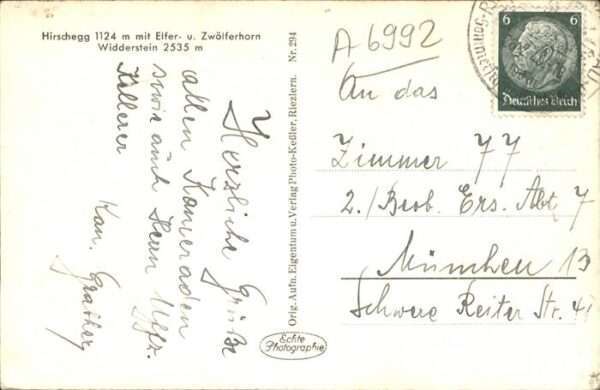 Hirschegg 1124 m mit Elfer- u. Zwölferhorn
Widderstein 2535 m
Herzliche Grüße
allen Kameraden
sowie auch Herrn Uffz.
Kollerer
Kan.
Orig. Aufn. Eigentum u. Verlag Photo-Keßler, Riezlern. Nr. 294
Echte
Photographie
A 6992
6 6
Deutsches Reich
An das
Zimmer 77
2./Beob. Ers. Abt 7
München 13
Schwere Reiter Str. 41